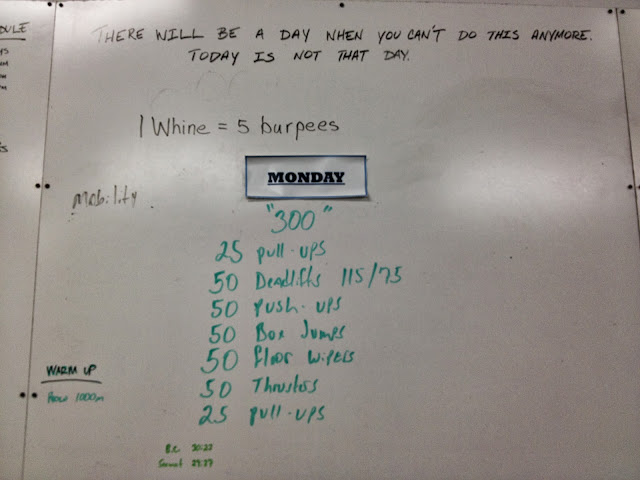 THERE WILL BE A DAY WHEN YOU CAN'T DO THIS ANYMORE.
TODAY IS NOT THAT DAY.
1 Whine = 5 burpees
MONDAY
mobility
"300"
25 pull-ups
50 Deadlifts 115/75
50 push-ups
50 Box Jumps
50 floor wipers
50 Thrusters
25 pull-ups
WARM UP
Row 1000m